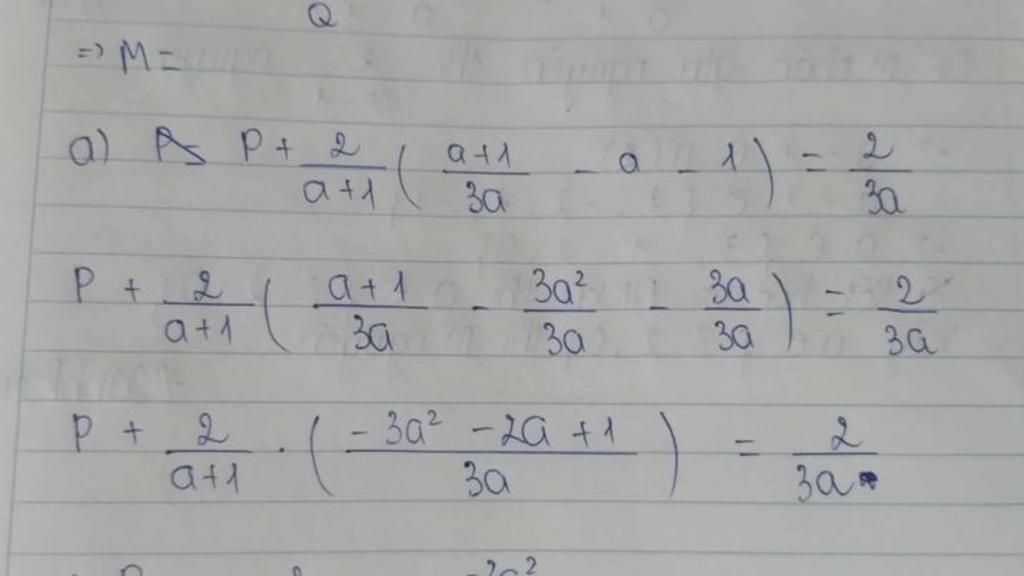 Q
=> M =
a) P + 2/(a+1) ( (a+1)/3a - a - 1 ) = 2/3a
P + 2/(a+1) ( (a+1)/3a - 3a²/3a - 3a/3a ) = 2/3a
P + 2/(a+1) . ( (-3a² - 2a + 1)/3a ) = 2/3a